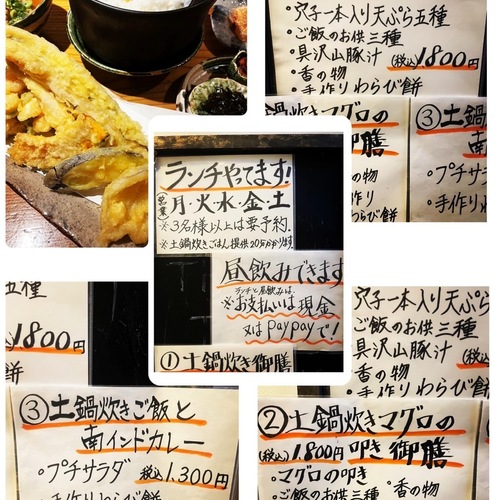 ・穴子一本入り天ぷら五種
・ご飯のお供三種
・具沢山豚汁
(税込)1800円
・香の物
・手作りわらび餅
土鍋炊きマグロの
叩き御膳
香の物
手作りわらび餅
③土鍋
南
・プチサラダ
・手作
ランチやてます!
営業 月・火・水・金・土
※3名様以上は要予約
※土鍋炊きごはん提供20分かかります。
昼飲みできます
ランチと昼飲みは、
※お支払いは現金
又はpaypayで!
①土鍋炊き御膳
五種
1800円
餅
③土鍋炊きご飯と
南インドカレー
・プチサラダ
税込1.300円
・手作りわらび餅
穴子一本入り天ぷら
ご飯のお供三種
具沢山豚汁
(税込)
香の物
手作りわらび餅
②土鍋炊きマグロの
(税込)1.800円 叩き御膳
・マグロの叩き
・香の物
・ご飯のお供三種